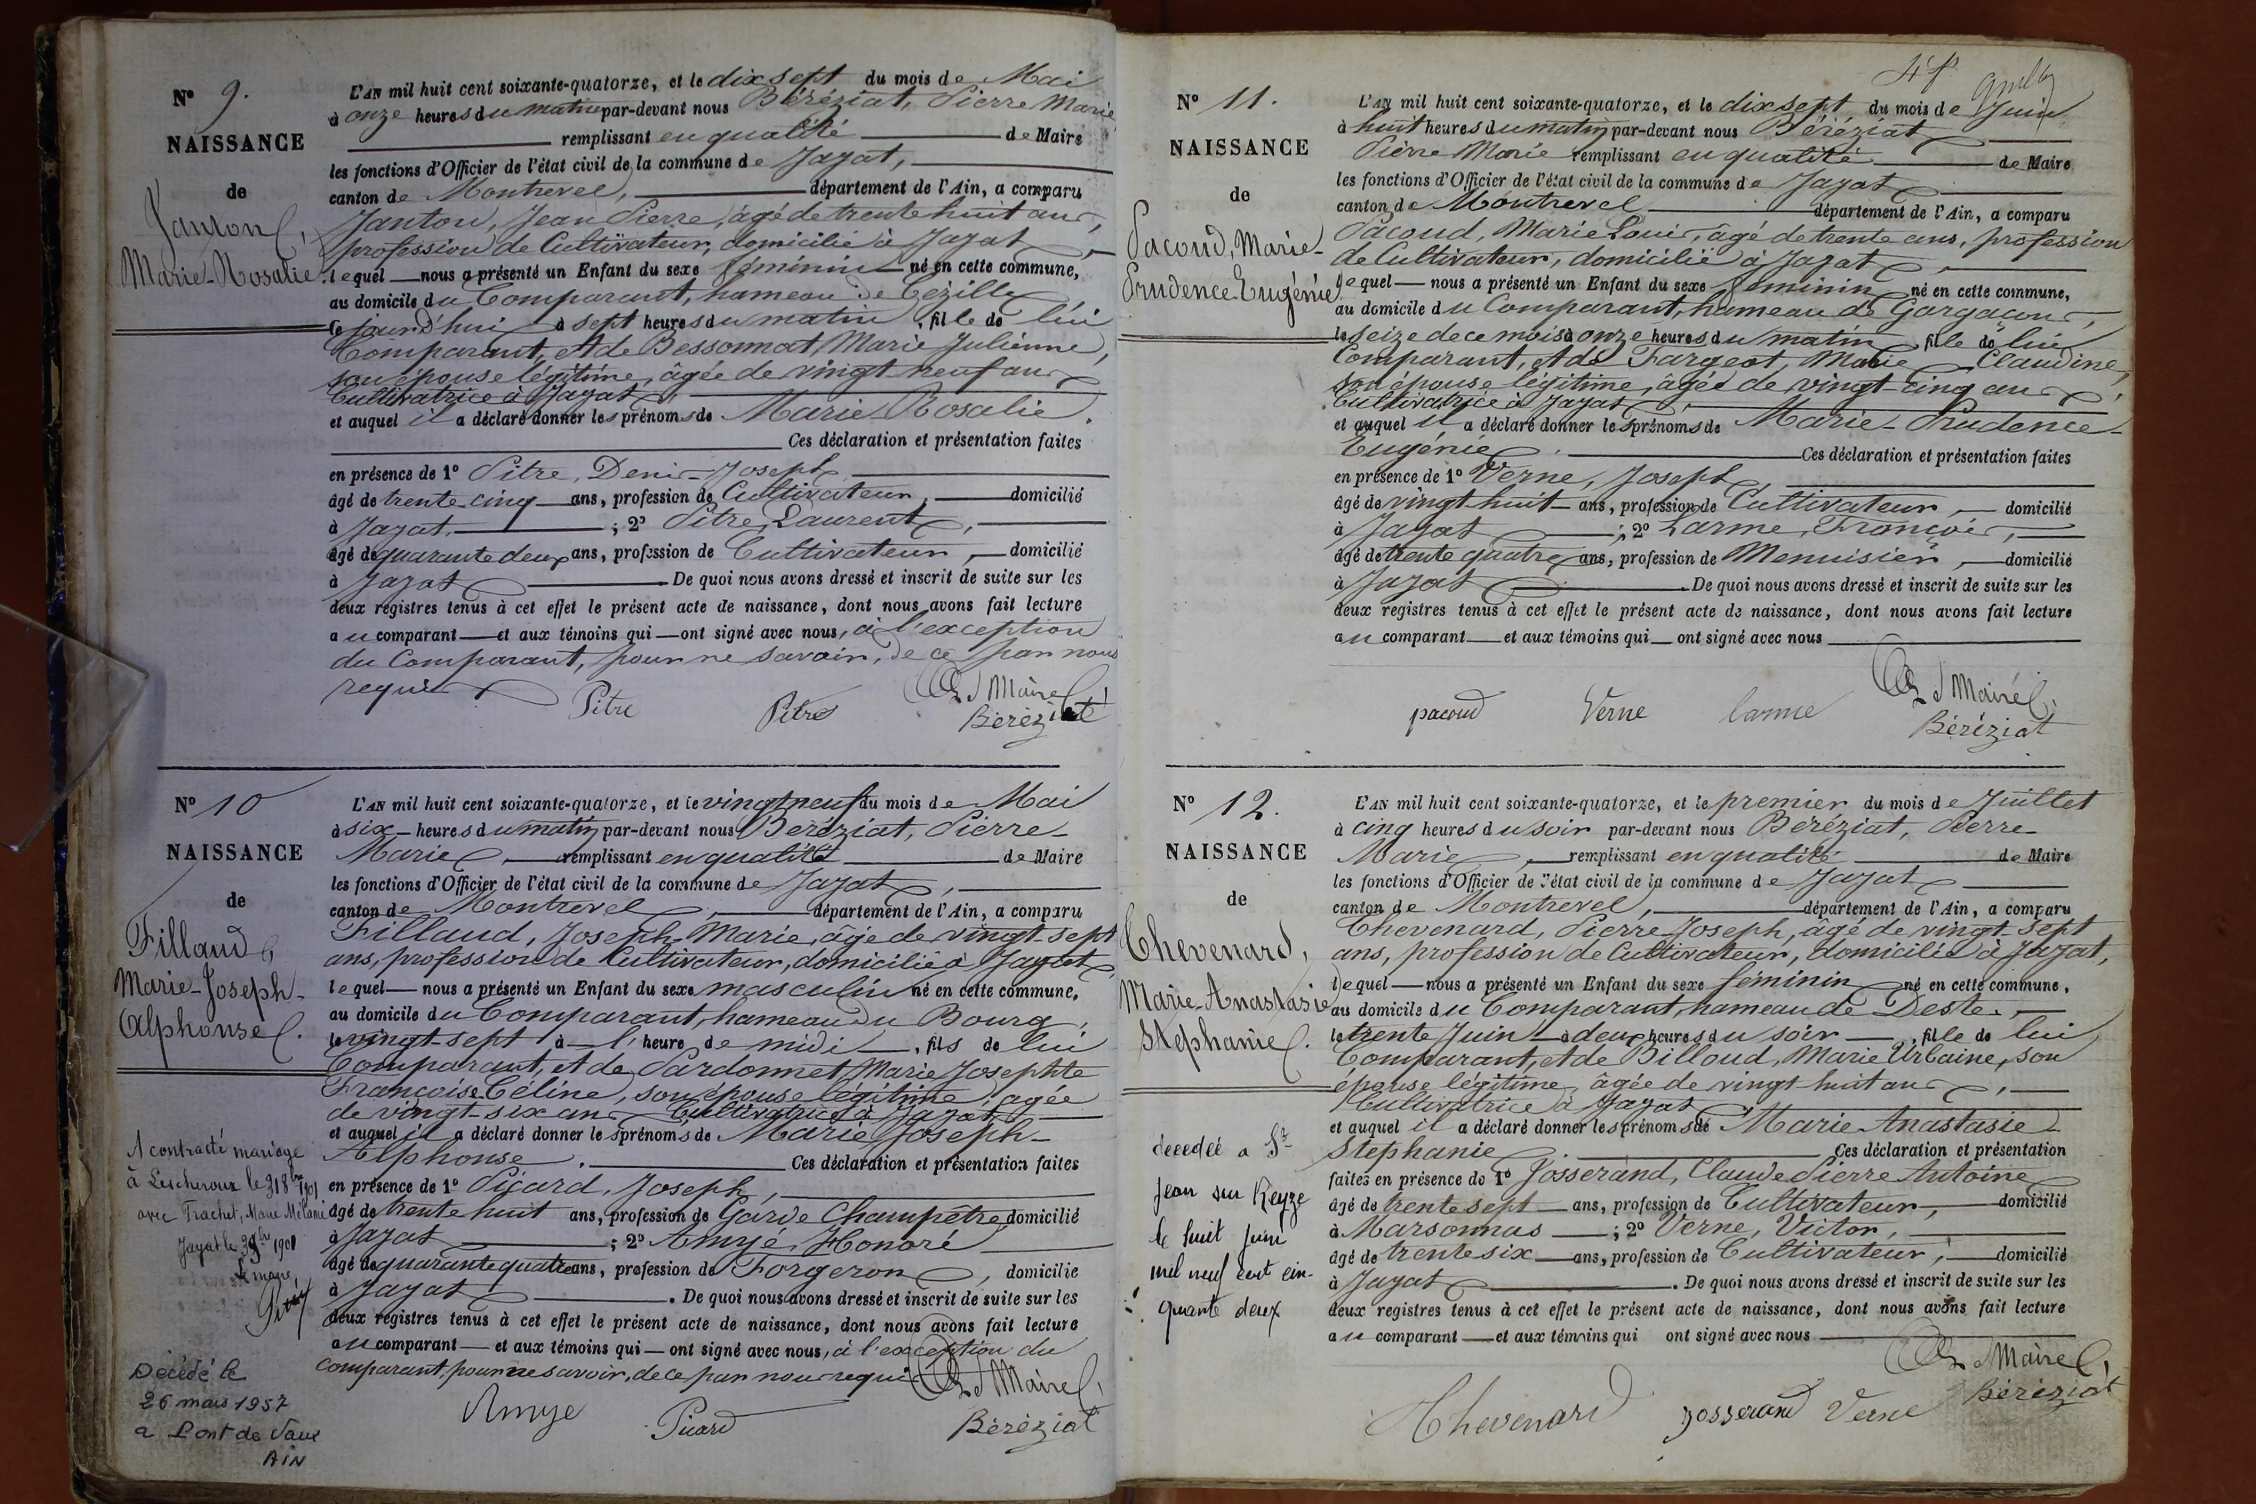 N° 9.
NAISSANCE
de
Janton,
Marie-Rosalie
L'AN mil huit cent soixante-quatorze, et le dix sept du mois de Mai
à onze heures du matin par-devant nous Béréziat, Pierre Marie
remplissant en qualité de Maire
les fonctions d'Officier de l'état civil de la commune de Jayat,
canton de Montrevel, département de l'Ain, a comparu
Janton, Jean Pierre, âgé de trente huit ans,
profession de Cultivateur, domicilié à Jayat,
lequel nous a présenté un Enfant du sexe féminin né en cette commune,
au domicile du Comparant, hameau de Cézille
ce jourd'hui à sept heures du matin, fille de lui
Comparant, et de Bessonnat, Marie Julienne,
son épouse légitime, âgée de vingt neuf ans
Cultivatrice à Jayat,
et auquel il a déclaré donner les prénoms de Marie-Rosalie.
Ces déclaration et présentation faites
en présence de 1° Pitre, Denis-Joseph
âgé de trente cinq ans, profession de Cultivateur, domicilié
à Jayat ; 2° Pitre, Laurent,
âgé de quarante deux ans, profession de Cultivateur, domicilié
à Jayat De quoi nous avons dressé et inscrit de suite sur les
deux registres tenus à cet effet le présent acte de naissance, dont nous avons fait lecture
au comparant et aux témoins qui ont signé avec nous, à l'exception
du Comparant, pour ne savoir, de ce par nous
requis
Pitre Pitre Le Maire,
Béréziat
N° 10
NAISSANCE
de
Fillaud,
Marie-Joseph-
Alphonse.
L'AN mil huit cent soixante-quatorze, et le vingt neuf du mois de Mai
à six heures du matin par-devant nous Béréziat, Pierre-
Marie, remplissant en qualité de Maire
les fonctions d'Officier de l'état civil de la commune de Jayat,
canton de Montrevel, département de l'Ain, a comparu
Fillaud, Joseph-Marie, âgé de vingt-sept
ans, profession de Cultivateur, domicilié à Jayat,
lequel nous a présenté un Enfant du sexe masculin né en cette commune,
au domicile du Comparant, hameau du Bourg,
le vingt-sept à l'heure de midi, fils de lui
Comparant, et de Pardonnet, Marie Josephte
Françoise Céline, son épouse légitime, agée
de vingt-six ans Cultivatrice à Jayat,
et auquel il a déclaré donner les prénoms de Marie Joseph-
Alphonse. Ces déclaration et présentation faites
en présence de 1° Picard, Joseph,
âgé de trente huit ans, profession de Garde Champêtre, domicilié
à Jayat ; 2° Amyé, Honoré
âgé de quarante quatre ans, profession de Forgeron, domicilié
à Jayat. De quoi nous avons dressé et inscrit de suite sur les
deux registres tenus à cet effet le présent acte de naissance, dont nous avons fait lecture
au comparant et aux témoins qui ont signé avec nous, à l'exception du
comparant, pour ne savoir, de ce par nous requis
Le Maire,
Amye Picard Béréziat
A contracté mariage
à Lescheroux le 31 8bre 1901
avec Trachet, Marie Mélanie
Jayat le 3 9bre 1901
Le maire,
Décédé le
26 mars 1957
a Pont de Vaux
AIN
N° 11.
NAISSANCE
de
Pacoud, Marie-
Prudence-Eugénie
L'AN mil huit cent soixante-quatorze, et le dix sept du mois de Juin
à huit heures du matin par-devant nous Béréziat
Pierre Marie remplissant en qualité de Maire
les fonctions d'Officier de l'état civil de la commune de Jayat
canton de Montrevel département de l'Ain, a comparu
Pacoud, Marie Louis, âgé de trente ans, profession
de Cultivateur, domicilié à Jayat,
lequel nous a présenté un Enfant du sexe féminin né en cette commune,
au domicile du Comparant, hameau de Gargacons,
le seize de ce mois à onze heures du matin, fille de lui
Comparant, et de Fargeot, Marie Claudine,
son épouse légitime, âgée de vingt-cinq ans,
Cultivatrice à Jayat,
et auquel il a déclaré donner les prénoms de Marie-Prudence-
Eugénie. Ces déclaration et présentation faites
en présence de 1° Verne, Joseph,
âgé de vingt-huit ans, profession de Cultivateur, domicilié
à Jayat ; 2° Larme, François,
âgé de trente quatre ans, profession de Menuisier, domicilié
à Jayat. De quoi nous avons dressé et inscrit de suite sur les
deux registres tenus à cet effet le présent acte de naissance, dont nous avons fait lecture
au comparant et aux témoins qui ont signé avec nous
Le Maire,
pacoud Verne larme Béréziat
N° 12.
NAISSANCE
de
Chevenard,
Marie-Anastasie
Stephanie.
L'AN mil huit cent soixante-quatorze, et le premier du mois de Juillet
à cinq heures du soir par-devant nous Béréziat, Pierre-
Marie, remplissant en qualité de Maire
les fonctions d'Officier de l'état civil de la commune de Jayat
canton de Montrevel, département de l'Ain, a comparu
Chevenard, Pierre Joseph, âgé de vingt-sept
ans, profession de Cultivateur, domicilié à Jayat,
lequel nous a présenté un Enfant du sexe féminin né en cette commune,
au domicile du Comparant, hameau de Deste,
le trente Juin à deux heures du soir, fille de lui
Comparant, et de Billoud, Marie Urbaine, son
épouse légitime, âgée de vingt-huit ans,
Cultivatrice à Jayat
et auquel il a déclaré donner les prénoms de Marie-Anastasie
Stephanie. Ces déclaration et présentation
faites en présence de 1° Josserand, Claude Pierre Antoine
âgé de trente sept ans, profession de Cultivateur, domicilié
à Marsonnas ; 2° Verne, Victor,
âgé de trente six ans, profession de Cultivateur, domicilié
à Jayat. De quoi nous avons dressé et inscrit de suite sur les
deux registres tenus à cet effet le présent acte de naissance, dont nous avons fait lecture
au comparant et aux témoins qui ont signé avec nous
Le Maire,
Chevenard Josserand Verne Béréziat
décedée a St
Jean sur Reyze
le huit Juin
mil neuf cent cin-
quante deux